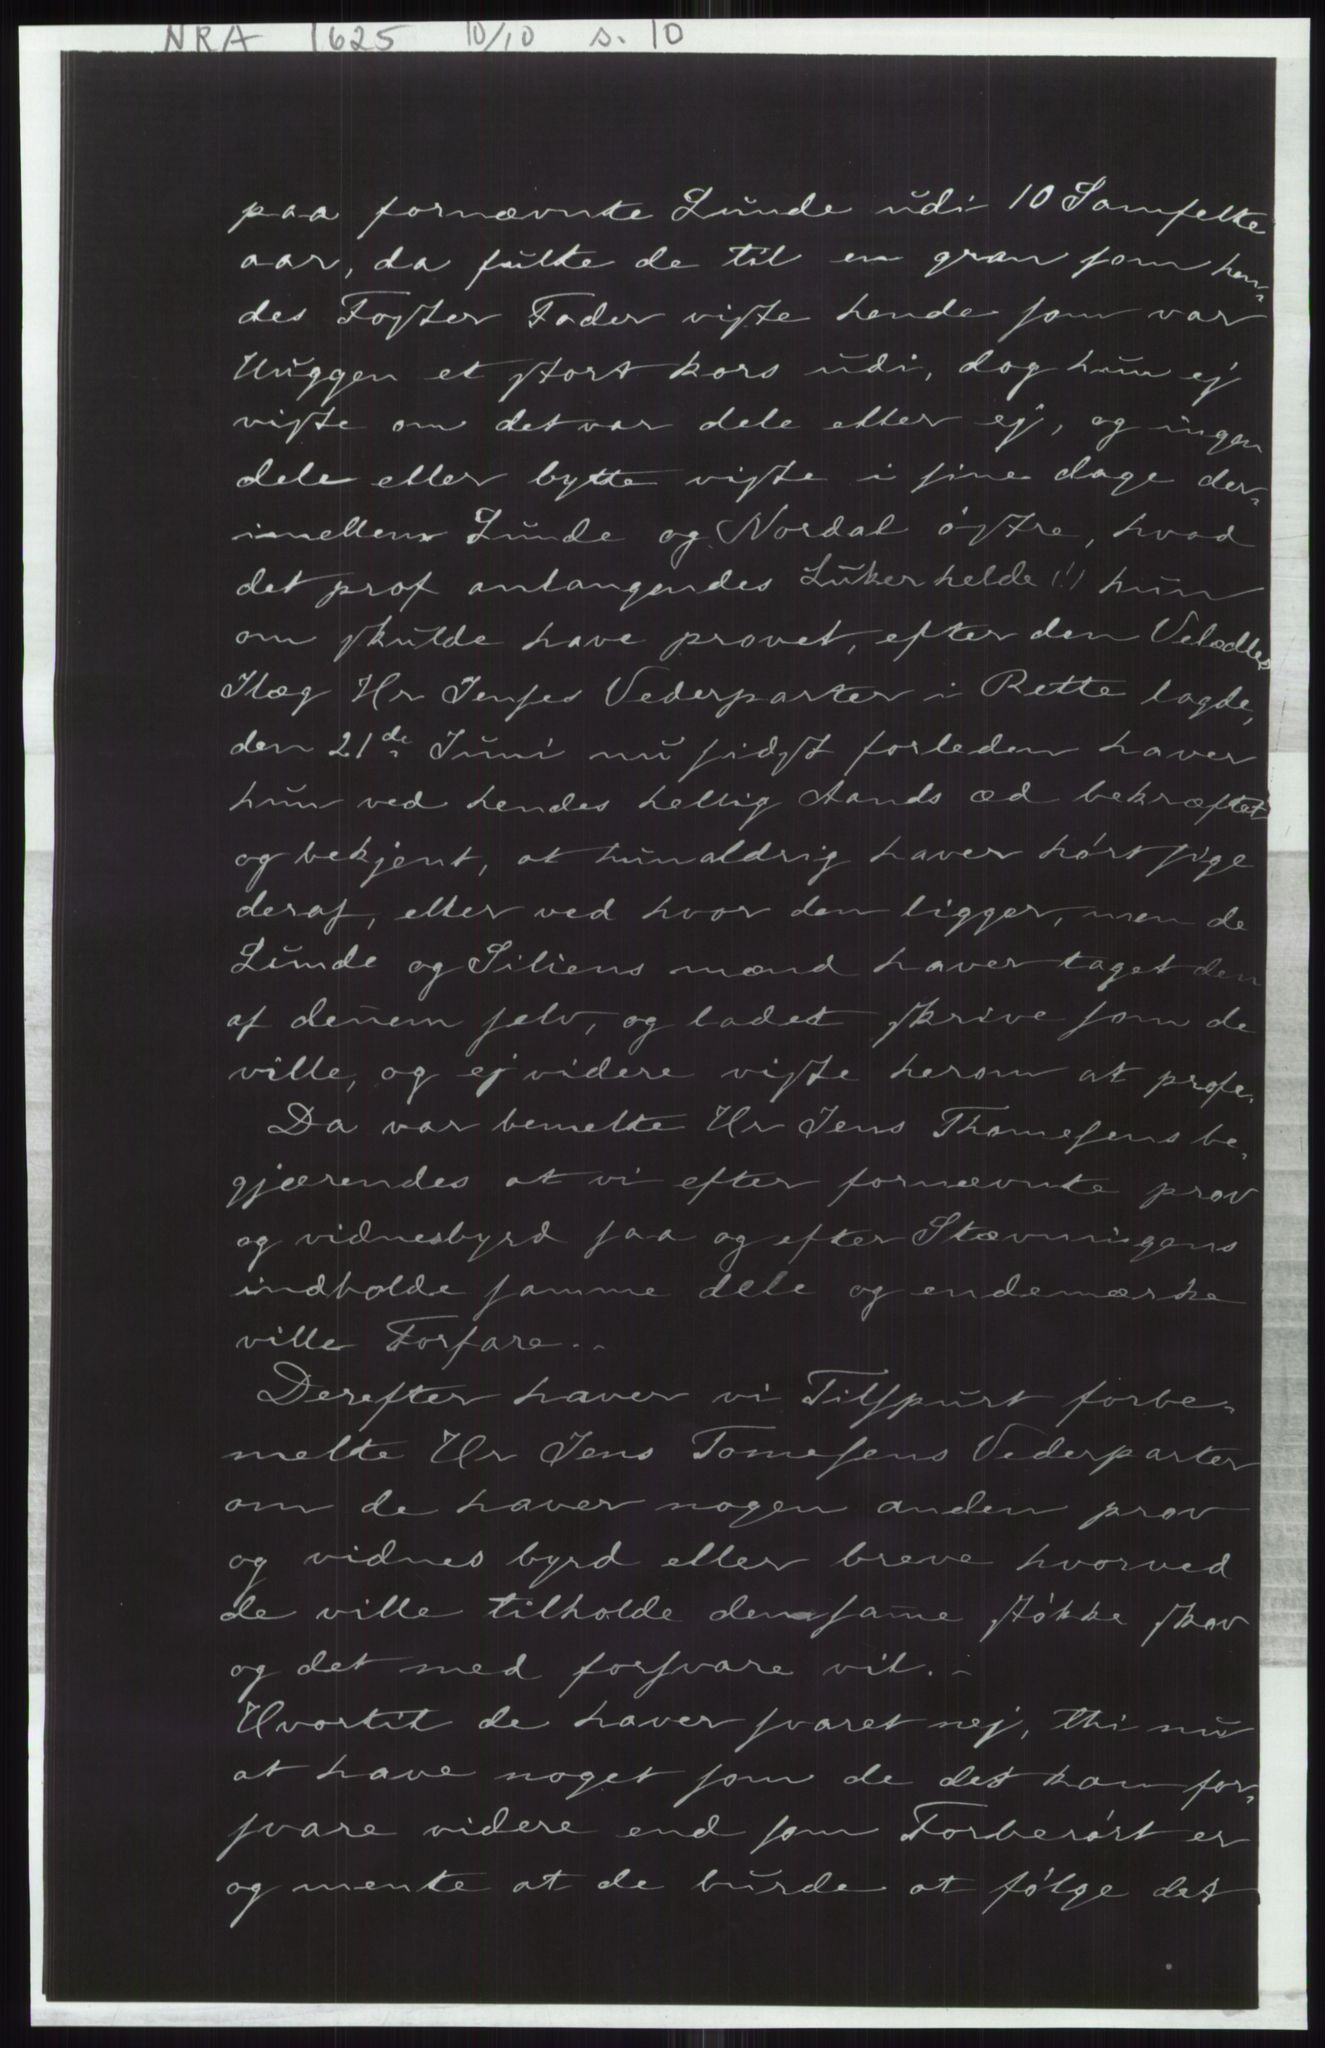 NRA 1625 10/10 s. 10
paa fornævnte Lunde udi 10 Samfelte
aar, da fulte de til en gran som hen-
des Foster Fader viste hende som var
Huggen et stort kors udi, dog hun ej
viste om det var dele eller ej, og ingen
dele eller bytte viste i sine dage der-
imellem Lunde og Nordal östre, hvad
det prof anlangendes Lukerhelde (!) hun
om skulde have provet, efter den
Ilæg Hr Jenses Vederparter i Rette lagde,
den 21de Juni nu sidst forleden haver
hun ved hendes hellig Aands æd bekræftet
og bekjent, at hun aldrig haver hört sige
deraf, eller ved hvor den ligger, men de
Lunde og Siliens mænd haver taget den
af dennem selv, og ladet skrive som de
ville, og ej videre viste herom at profe.
Da var bemelte Hr Jens Thomesens be-
gjærendes at vi efter fornævnte prov
og vidnesbyrd saa og efter Stævningens
indholde samme dele og endemærke
ville Forfare..
Derefter haver vi Tilspurt forbe-
melte Hr Jens Tomesens Vederparter
om de haver nogen anden prov
og vidnes byrd eller breve hvorved
de ville tilholde den same stökke skov
og det med forsvare vil.-
Hvortil de haver svaret nej, thi nu
at have noget som de det kan for-
svare videre end som Forberört er
og mente at de burde at fölge det